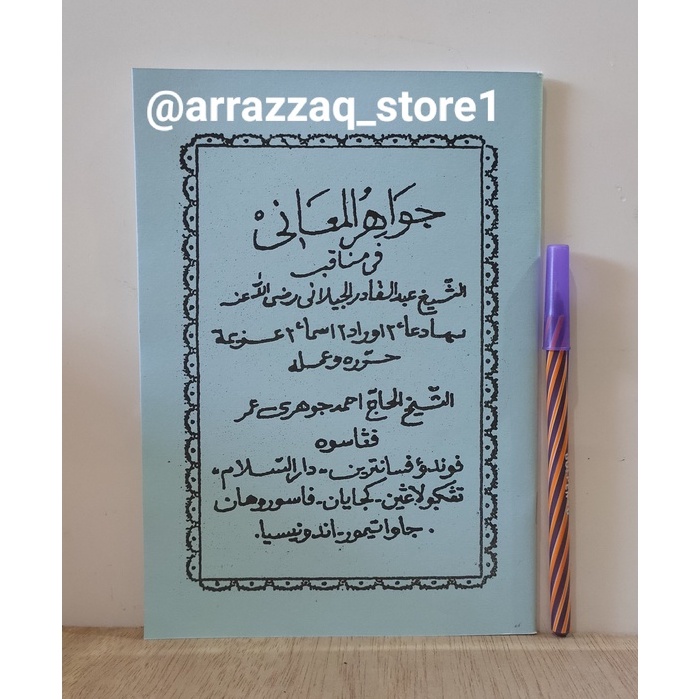 @arrazzaq_store1
جَوَاهِرُ الْمَعَانِى
فى مناقب
الشّيخ عبد القادر الجيلانى رضى اللّٰه عنه
بهادعاء٢ اوراد٢ اسماء٢ عزيمة
حرّره وعمله
الشّيخ الحاجّ احمد جوهرى عمر
ڤڠاسوه
ڤوندؤ ڤسانترين - دار السّلام -
تڠكولاڠين - كجايان - ڤاسوروهان
. جاوا تيمور - اندونيسيا .